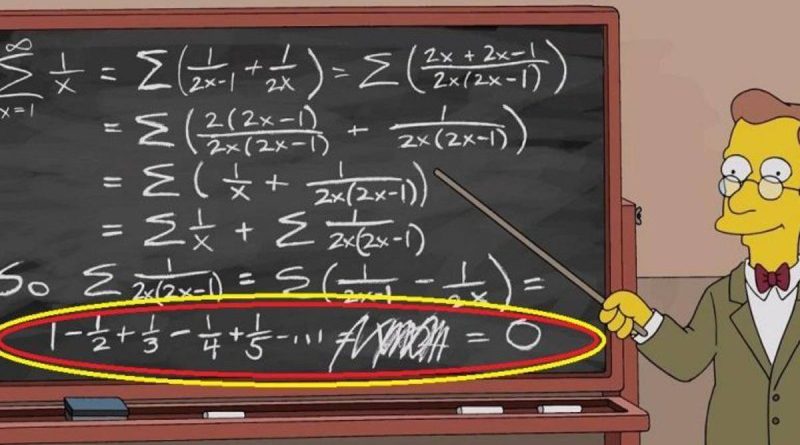 ∞ Σ x=1 1/x = Σ(1/2x-1 + 1/2x) = Σ(2x + 2x-1/2x(2x-1))
= Σ(2(2x-1)/2x(2x-1) + 1/2x(2x-1))
= Σ(1/x + 1/2x(2x-1))
= Σ 1/x + Σ 1/2x(2x-1)
So Σ 1/2x(2x-1) = Σ(1/2x-1 - 1/2x) =
1 - 1/2 + 1/3 - 1/4 + 1/5 - ... = = 0